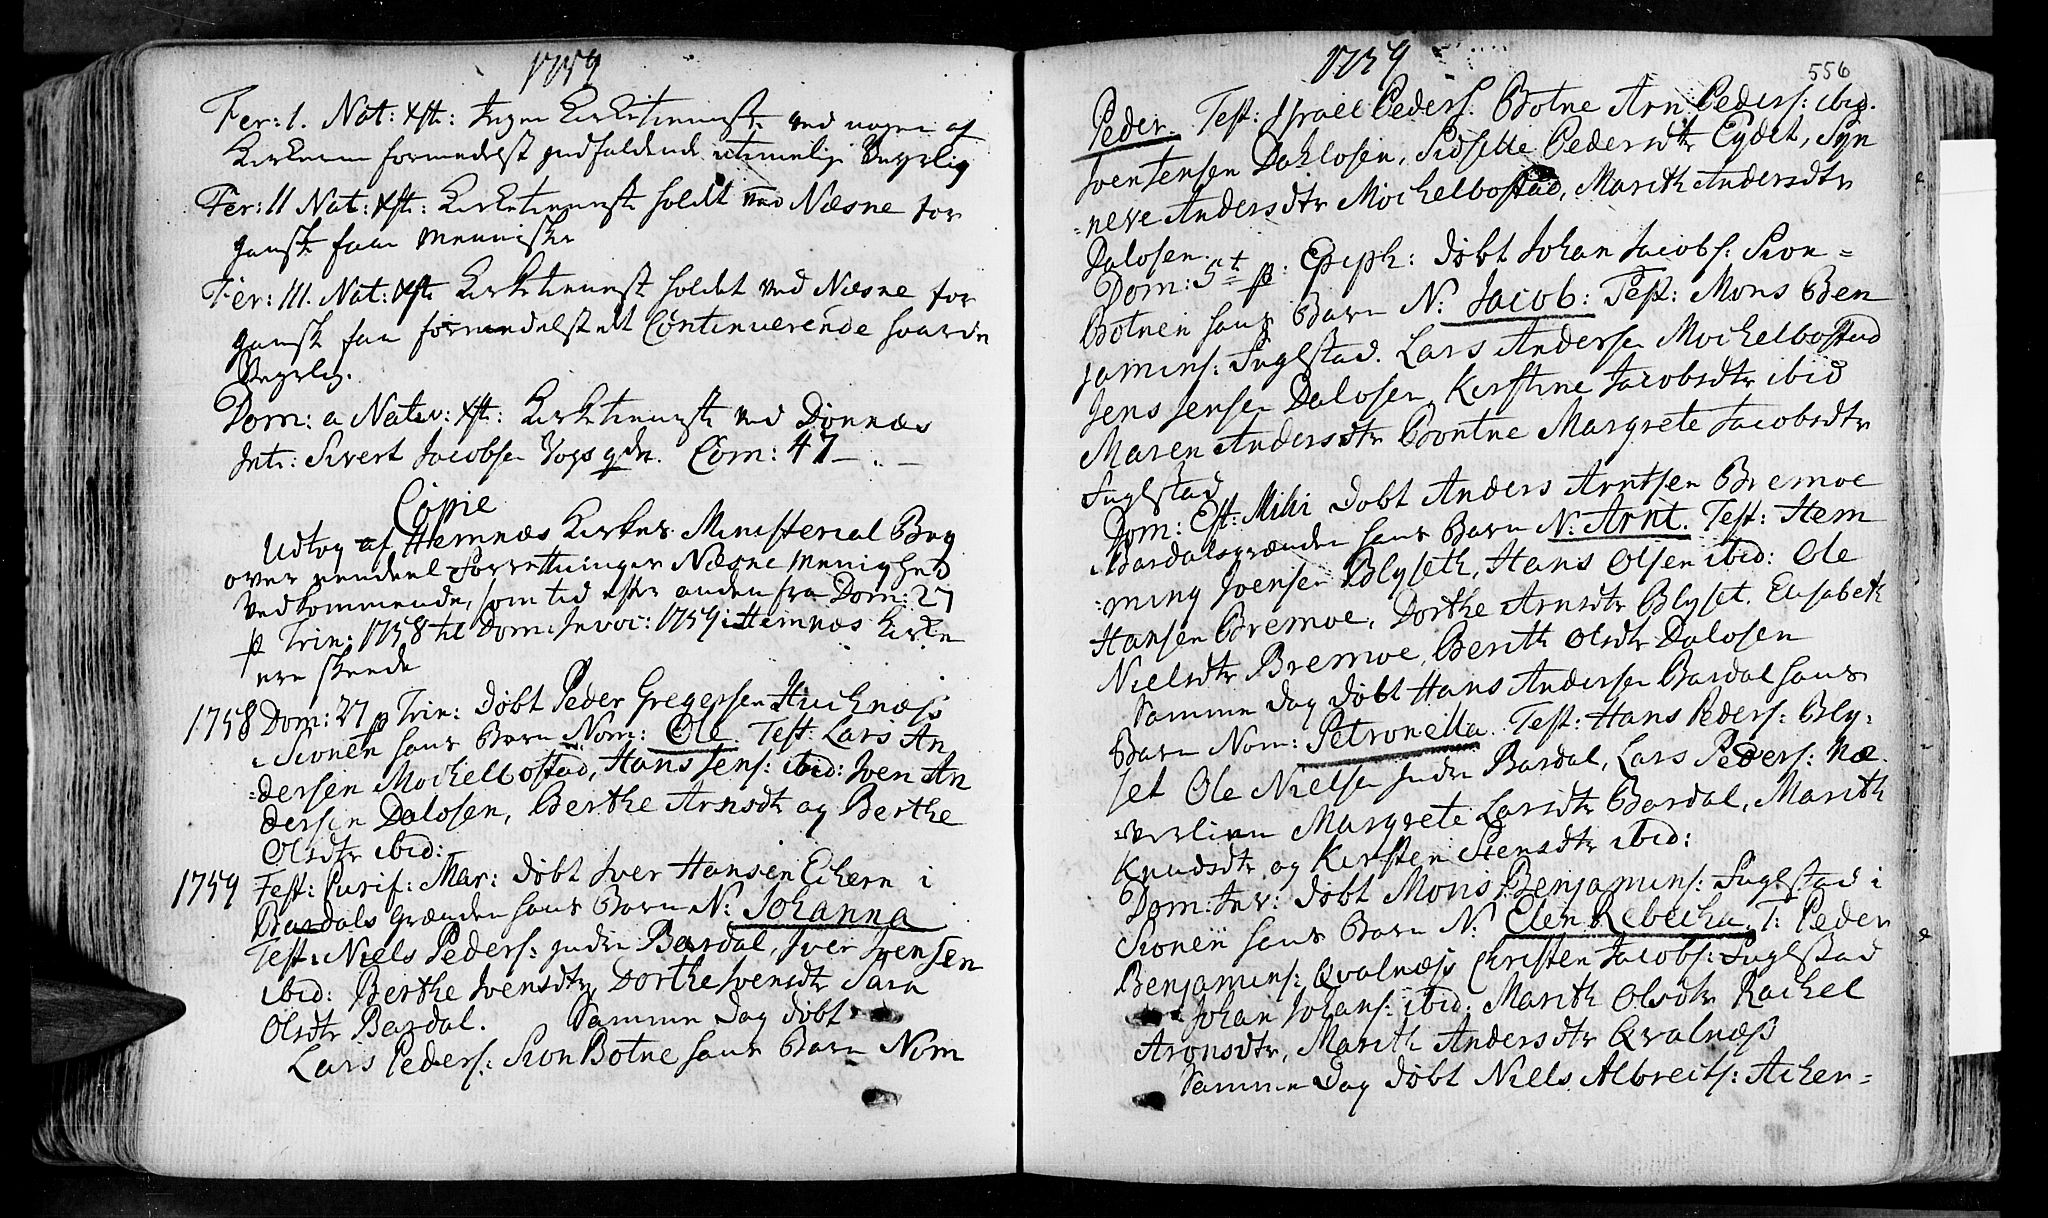 1759
Fer: 1. Nat: Xsti: Ingen Kirketieneste ved nogen af
Kirkerne formedelst indfaldende utimelig Veyrlig
Fer: II Nat: Xsti: Kirketieneste holdt ved Næsne for
gansk faae Mennisker
Fer: III. Nat: Xsti Kirketieneste holdet ved Næsne for
gansk faa formedelst et Continuerende haarde
Veyrlig.
Dom: a Nativ: Xsti: Kirketieneste ved Dönnæs
Int: Sivert Jacobsen Com: 47 - .. -
Copie
Udtog af Hemnæs Kirkes Ministerial Bog
over eendeel Forretninger Næsne Menighed
vedkommende, som tid efter anden fra Dom: 27
p Trin: 1758 til Dom: Invoc: 1759 i Hemnæs Kirke
ere skeede
1758 Dom: 27 p Trin: döbt Peder Gregersen
i Sionen hans Barn Nom: Ole. Test: Lars An
=dersen Mochelbostad, Hans Jens: ibid: Iven An
dersen Dalosen, Berthe Arnsdtr og Berthe
Olsdtr ibid:
1759 Fest: Purif: Mar: döbt Iver Hansen Echern i
Bardals Grænden hans Barn N: Johanna
Test: Niels Peders: indre Bardal, Iver Ivensen
ibid: Berthe Ivensdtr, Dorthe Ivensdtr Sara
Olsdtr Bardal. Samme Dag döbt
Lars Peders: Sion Botne hans Barn Nom
1759
556
Peder. Test: Israel Peders. Botne Arn Peders: ibid.
Iven Jensen Dahlosen, Sidselle Pedersdtr Eydet, Syn
=neve Andersdtr Mochelbostad, Marith Andersdtr
Dalosen.
Dom: 5t p: Epiph: döbt Johan Jacobs: Sion=
Botnen hans Barn N: Jacob: Test: Mons Ben
jamins: Fuglstad. Lars Andersen Mochelbostad
Jens Jensen Dalosen, Kirstine Jacobsdtr ibid
Maren Andersdtr Bontne Margrete Jacobsdtr
Fuglstad
Dom: Est: Mihi döbt Anders Arntsen Bremoe
i Bardalsgrænden hans Barn N: Arnt. Test: Hem
=ming Ivensen Blyseth, Hans Olsen ibid: Ole
Hansen Bremoe, Dorthe Arnsdtr Blyset. Elisabeth
Nielsdtr Bremoe, Berith Olsdtr Dalosen
Samme Dag döbt Hans Andersen Bardal hans
Barn Nom: Petronella. Test: Hans Peders: Bly:
set Ole Nielsen indre Bardal, Lars Peders: Næ
=verlien Margrete Larsdtr Bardal, Marith
Knudsdtr og Kirsten Stensdtr ibid:
Dom: Inv: döbt Mons Benjamins: Fuglstad i
Sionen hans Barn N: Elen Rebecha. T: Peder
Benjamins: Qvalnæss Christen Jacobs: Fuglstad
Johan Johans: ibid: Marith Olsdtr Rachel
Aronsdtr, Marith Andersdtr Qvalnæss
Samme Dag döbt Niels Albrects: Acher=